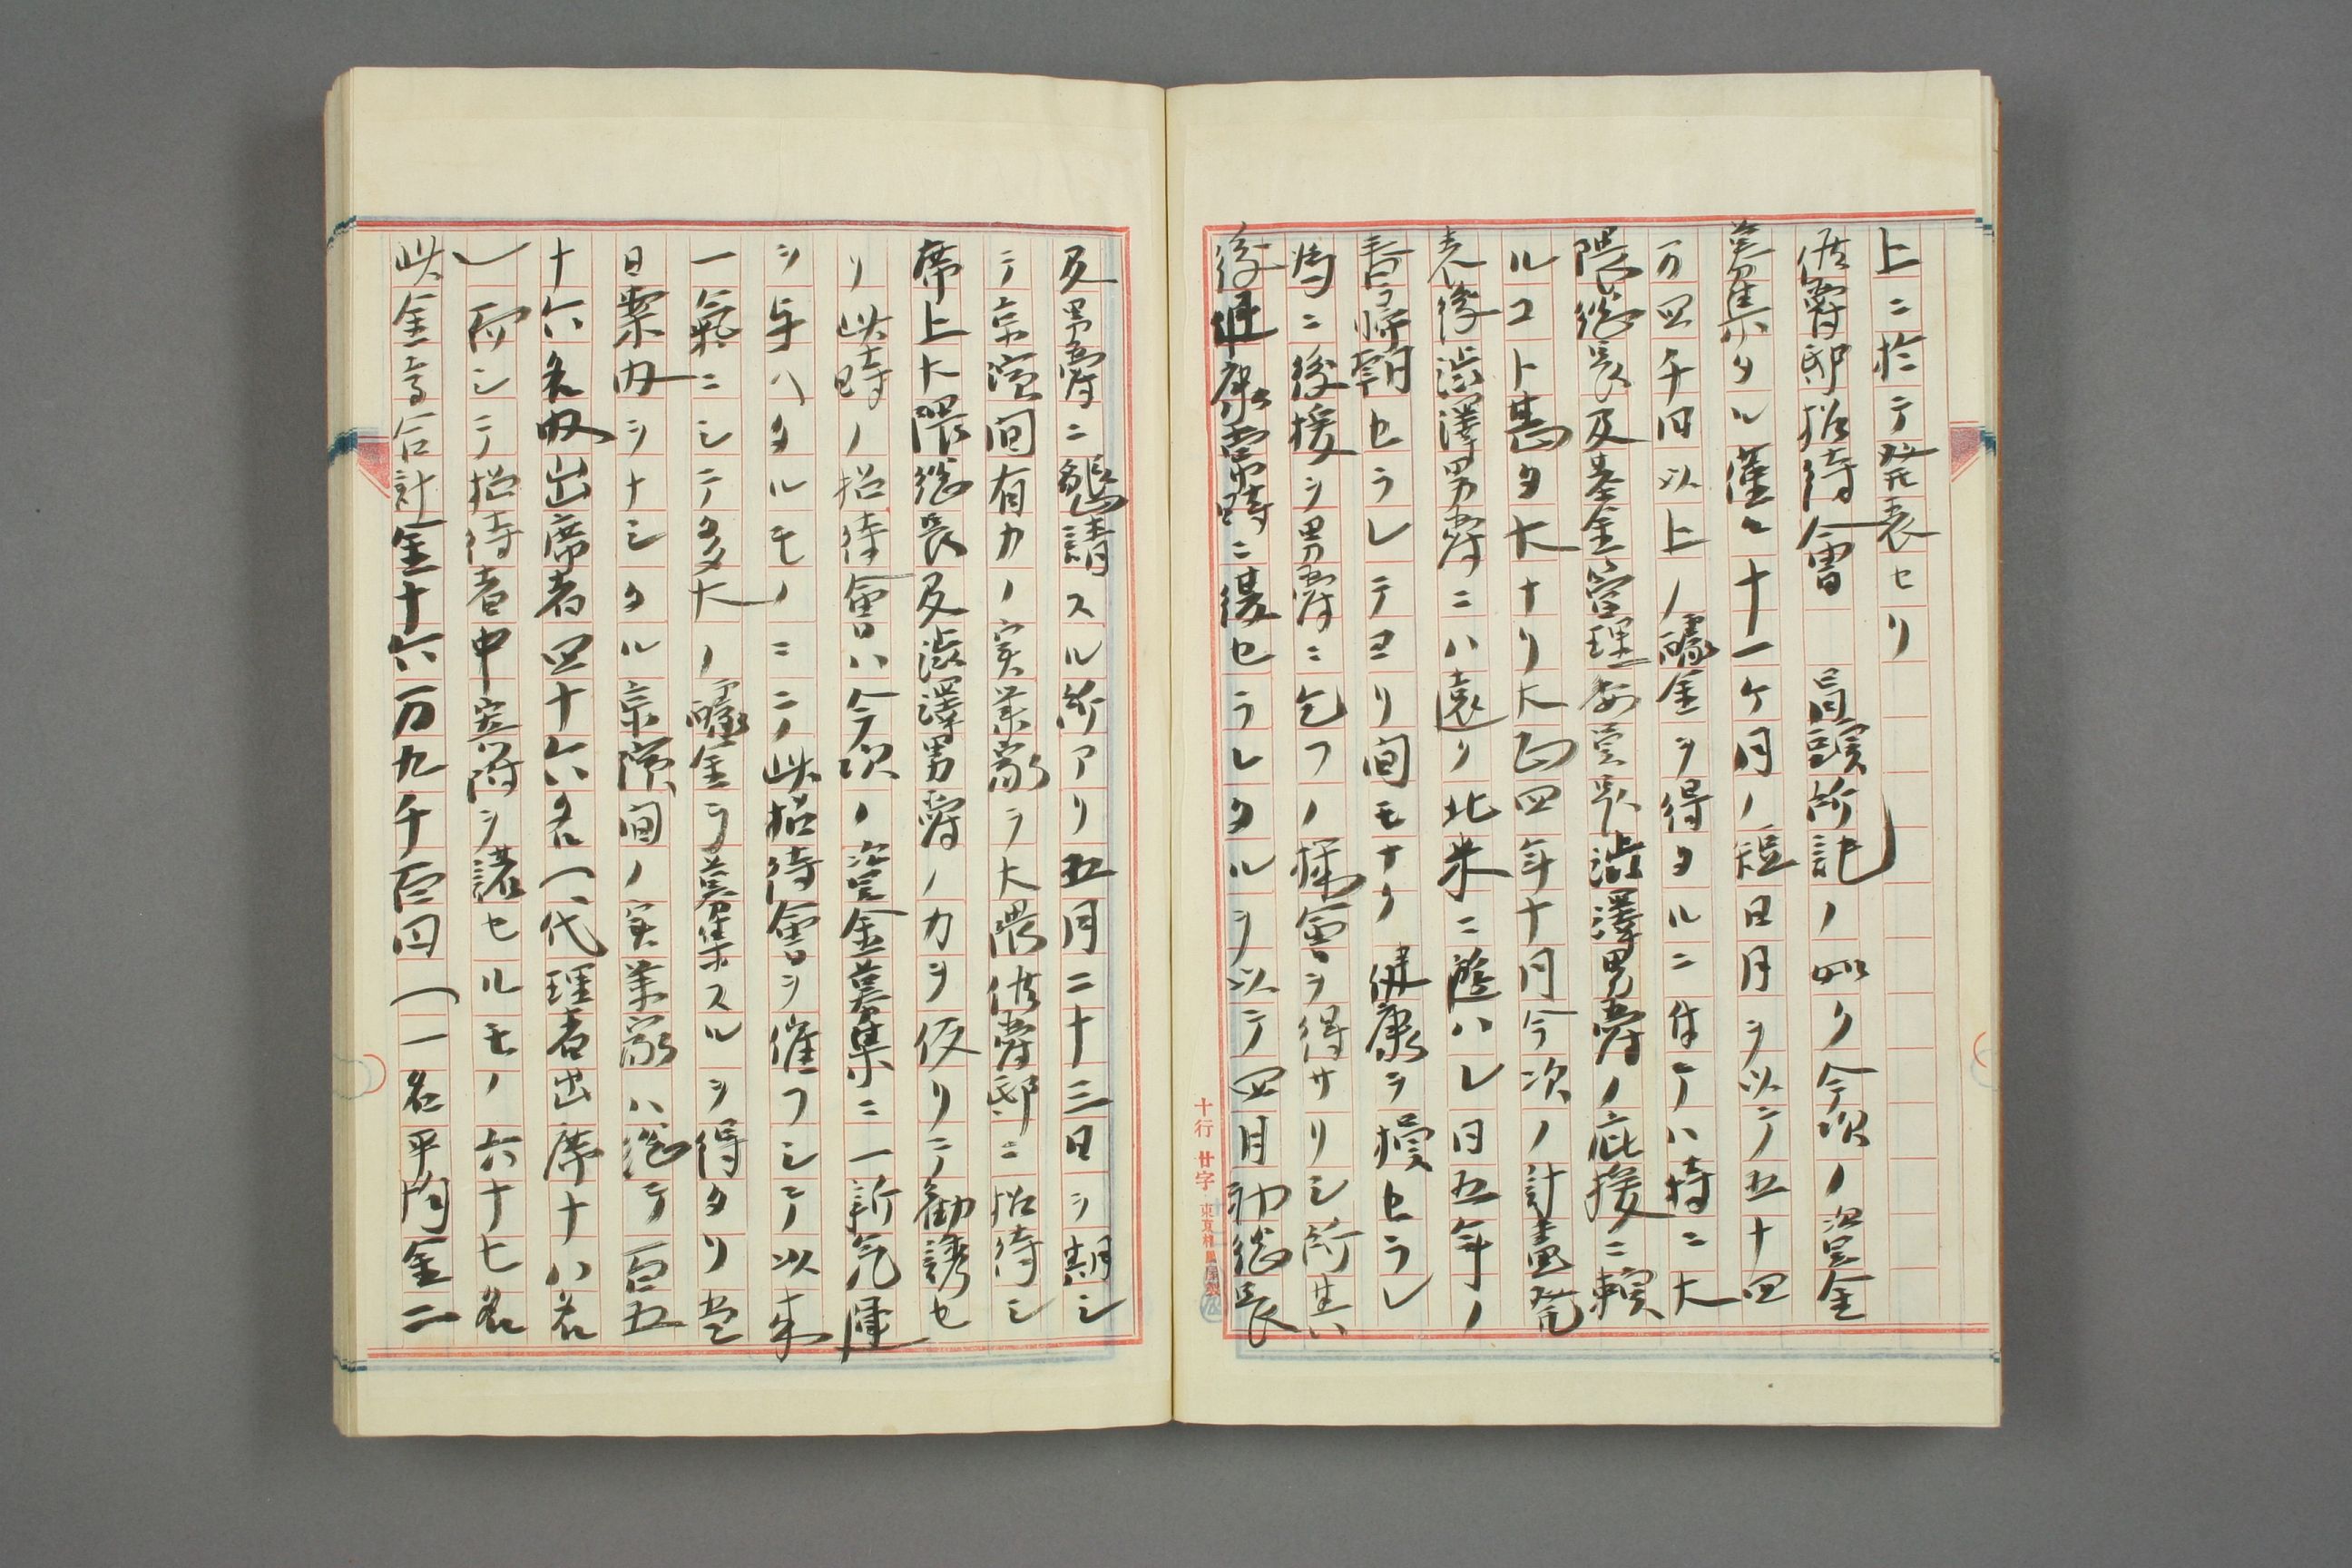 上ニ於テ発表セリ
侯爵邸招待會　冒頭所記ノ如ク今次ノ資金
募集タル僅々十一ケ月ノ短日月ヲ以テ五十四
万四千円以上ノ醵金ヲ得タルニ付テハ特ニ大
隈総長及基金管理委員長渋澤男爵ノ庇援ニ頼
ルコト甚タ大ナリ大正四年十月今次ノ計畫発
表後渋澤男爵ニハ遠ク北米ニ遊ハレ同五年ノ
春帰朝セラレテヨリ間モナク健康ヲ損セラレ
為ニ後援ヲ男爵ニ乞フノ機會ヲ得サリシ所其
後健康常時ニ復セラレタルヲ以テ四月初総長
十行 廿字
及男爵ニ懇請スル所アリ五月二十三日ヲ期シ
テ京濱間有力ノ実業家ヲ大隈侯爵邸ニ招待シ
席上大隈総長及渋澤男爵ノ力ヲ仮リテ勧誘セ
リ此時ノ招待會ハ今次ノ資金募集ニ一新気運
ヲ与ヘタルモノニテ此招待會ヲ催フシテ以来
一氣ニシテ多大ノ醵金ヲ募集スルヲ得タリ當
日案内ヲナシタル京濱間ノ実業家ハ総テ百五
十六名内出席者四十六名（代理者出席十八名
）而シテ招待者中寄附ヲ諾セルモノ六十七名
此金高合計金十六万九千百円（一名平均金二